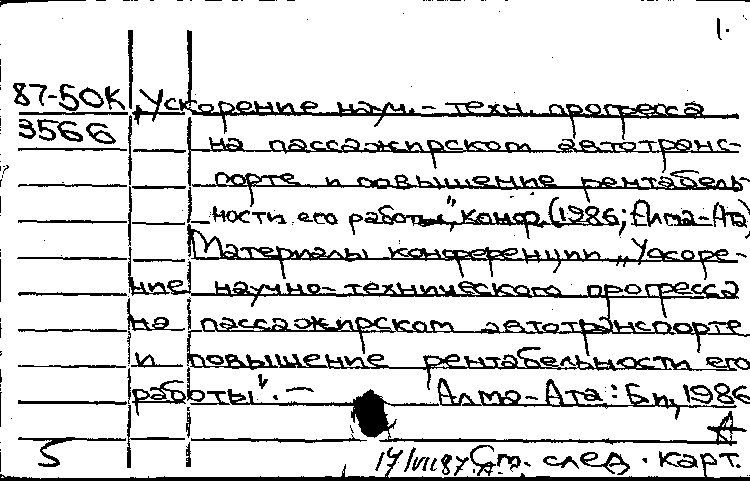 1.
87-50К „Ускорение науч.-техн. прогресса
3566 на пассажирском автотранс-
порте и повышение рентабель-
ности его работы", конф. (1986; Алма-Ата)
Материалы конференции „Ускоре-
ние научно-технического прогресса
на пассажирском автотранспорте
и повышение рентабельности его
работы". — Алма-Ата: Би, 1986
5 17/VII 87 См. след. карт.